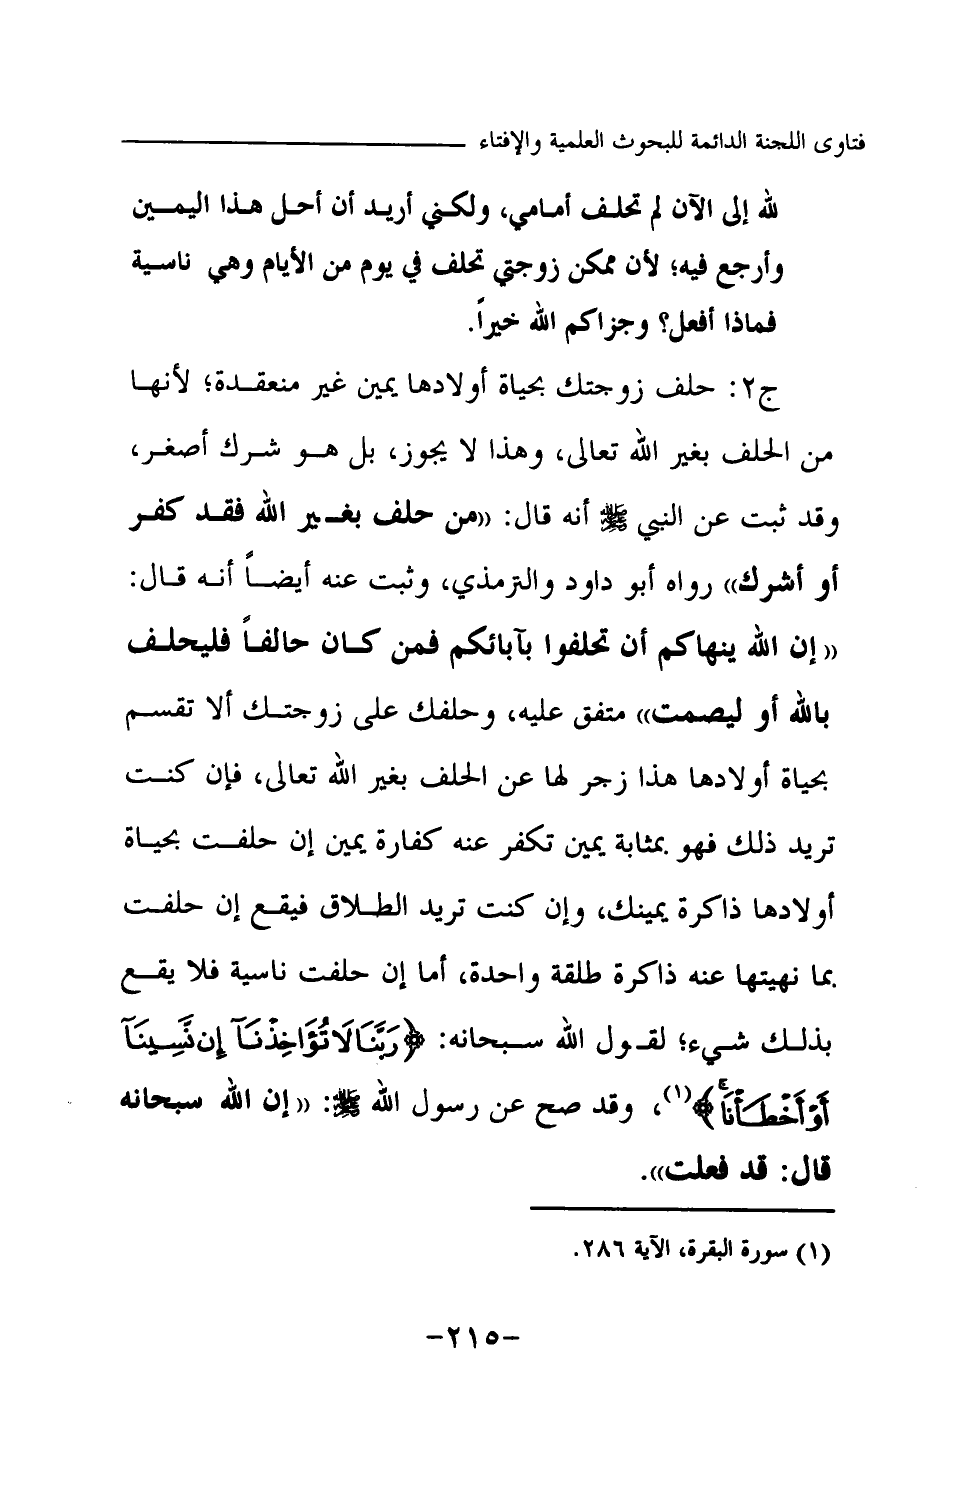 فتاوى اللجنة الدائمة للبحوث العلمية والإفتاء
لله إلى الآن لم تحلف أمامي، ولكني أريد أن أحل هذا اليمين
وأرجع فيه؛ لأن ممكن زوجتي تحلف في يوم من الأيام وهي ناسية
فماذا أفعل؟ وجزاكم الله خيراً.
ج٢: حلف زوجتك بحياة أولادها يمين غير منعقدة؛ لأنها
من الحلف بغير الله تعالى، وهذا لا يجوز، بل هو شرك أصغر،
وقد ثبت عن النبي ﷺ أنه قال: ((من حلف بغير الله فقد كفر
أو أشرك)) رواه أبو داود والترمذي، وثبت عنه أيضاً أنه قال:
((إن الله ينهاكم أن تحلفوا بآبائكم فمن كان حالفاً فليحلف
بالله أو ليصمت)) متفق عليه، وحلفك على زوجتك ألا تقسم
بحياة أولادها هذا زجر لها عن الحلف بغير الله تعالى، فإن كنت
تريد ذلك فهو بمثابة يمين تكفر عنه كفارة يمين إن حلفت بحياة
أولادها ذاكرة يمينك، وإن كنت تريد الطلاق فيقع إن حلفت
بما نهيتها عنه ذاكرة طلقة واحدة، أما إن حلفت ناسية فلا يقع
بذلك شيء؛ لقول الله سبحانه: ﴿رَبَّنَا لَا تُؤَاخِذْنَآ إِن نَّسِينَآ
أَوْ أَخْطَأْنَا﴾(١)، وقد صح عن رسول الله ﷺ: ((إن الله سبحانه
قال: قد فعلت)).
(١) سورة البقرة، الآية ٢٨٦.
-٢١٥-